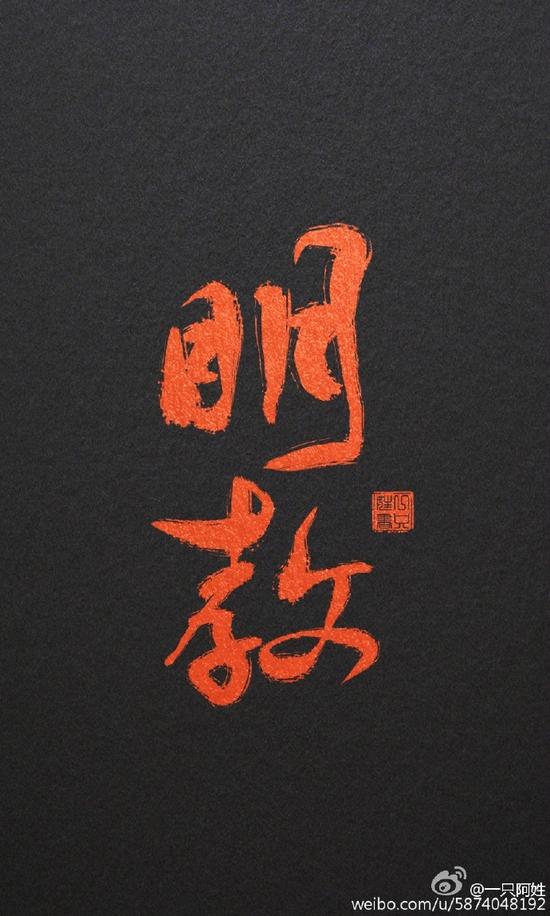 明教
@一只阿姓
weibo.com/u/5874048192